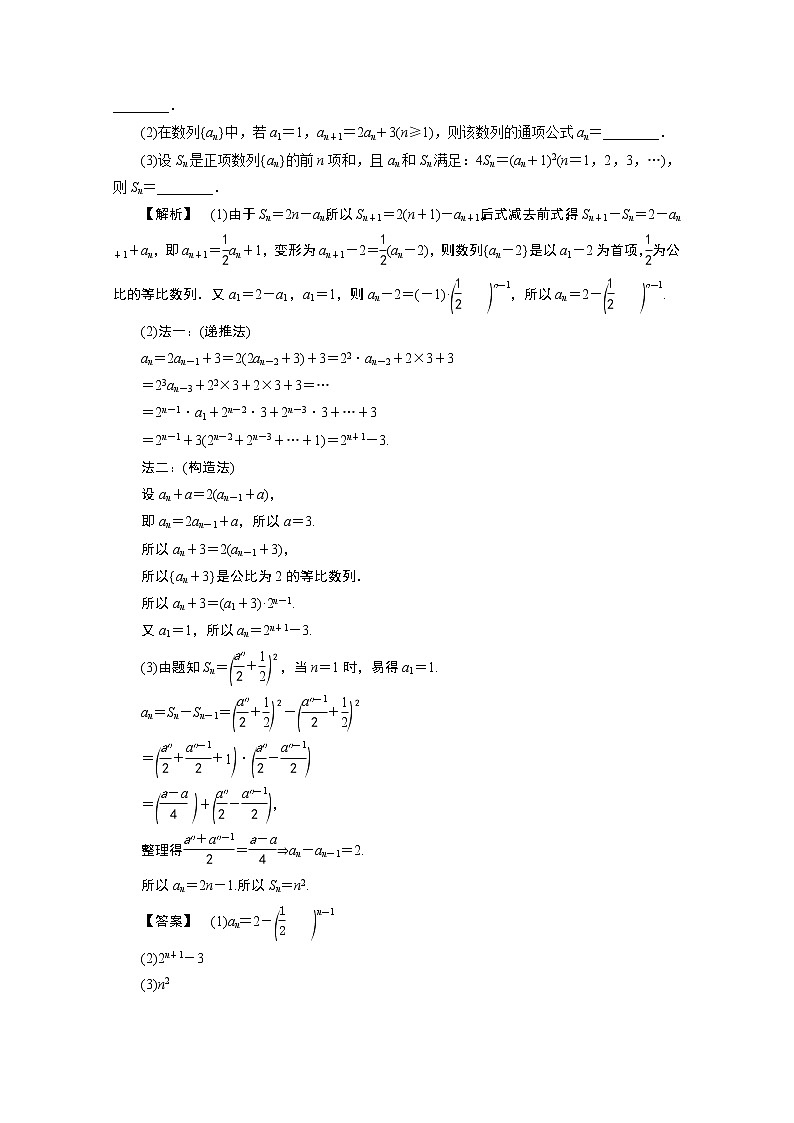 ________.
(2)在数列{aₙ}中，若 a₁＝1，aₙ₊₁＝2aₙ＋3(n≥1)，则该数列的通项公式 aₙ＝________.
(3)设 Sₙ是正项数列{aₙ}的前 n 项和，且 aₙ和 Sₙ满足：4Sₙ＝(aₙ＋1)²(n＝1，2，3，…)，
则 Sₙ＝________.
【解析】 (1)由于 Sₙ＝2n－aₙ所以 Sₙ₊₁＝2(n＋1)－aₙ₊₁后式减去前式得 Sₙ₊₁－Sₙ＝2－aₙ
₊₁＋aₙ，即 aₙ₊₁＝1/2aₙ＋1，变形为 aₙ₊₁－2＝1/2(aₙ－2)，则数列{aₙ－2}是以 a₁－2 为首项，1/2为公
比的等比数列．又 a₁＝2－a₁，a₁＝1，则 aₙ－2＝(－1)·(1/2)ⁿ⁻¹，所以 aₙ＝2－(1/2)ⁿ⁻¹.
(2)法一：(递推法)
aₙ＝2aₙ₋₁＋3＝2(2aₙ₋₂＋3)＋3＝2²·aₙ₋₂＋2×3＋3
＝2³aₙ₋₃＋2²×3＋2×3＋3＝…
＝2ⁿ⁻¹·a₁＋2ⁿ⁻²·3＋2ⁿ⁻³·3＋…＋3
＝2ⁿ⁻¹＋3(2ⁿ⁻²＋2ⁿ⁻³＋…＋1)＝2ⁿ⁺¹－3.
法二：(构造法)
设 aₙ＋a＝2(aₙ₋₁＋a)，
即 aₙ＝2aₙ₋₁＋a，所以 a＝3.
所以 aₙ＋3＝2(aₙ₋₁＋3)，
所以{aₙ＋3}是公比为 2 的等比数列．
所以 aₙ＋3＝(a₁＋3)·2ⁿ⁻¹.
又 a₁＝1，所以 aₙ＝2ⁿ⁺¹－3.
(3)由题知 Sₙ＝(aⁿ/2＋1/2)²，当 n＝1 时，易得 a₁＝1.
aₙ＝Sₙ－Sₙ₋₁＝(aⁿ/2＋1/2)²－(aⁿ⁻¹/2＋1/2)²
＝(aⁿ/2＋aⁿ⁻¹/2＋1)·(aⁿ/2－aⁿ⁻¹/2)
＝((a－a)/4)＋(aⁿ/2－aⁿ⁻¹/2)，
整理得(aⁿ＋aⁿ⁻¹)/2＝(a－a)/4⇒aₙ－aₙ₋₁＝2.
所以 aₙ＝2n－1.所以 Sₙ＝n².
【答案】 (1)aₙ＝2－(1/2)ⁿ⁻¹
(2)2ⁿ⁺¹－3
(3)n²